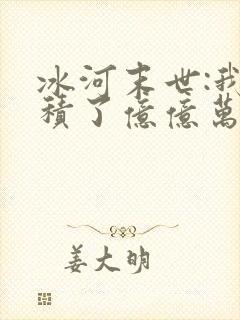 冰河末世:我
積了億億萬
姜大明